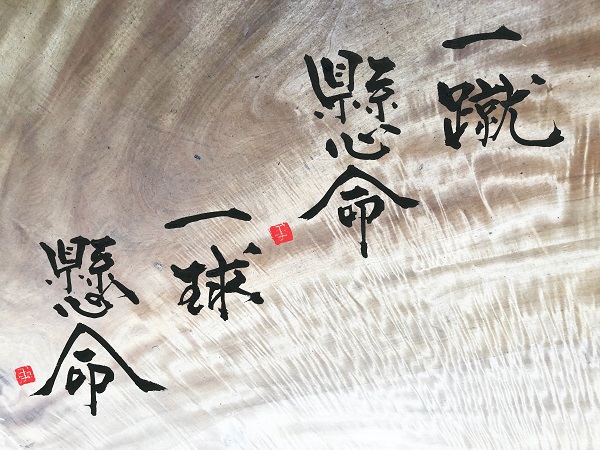 一蹴
懸命
一球
懸命